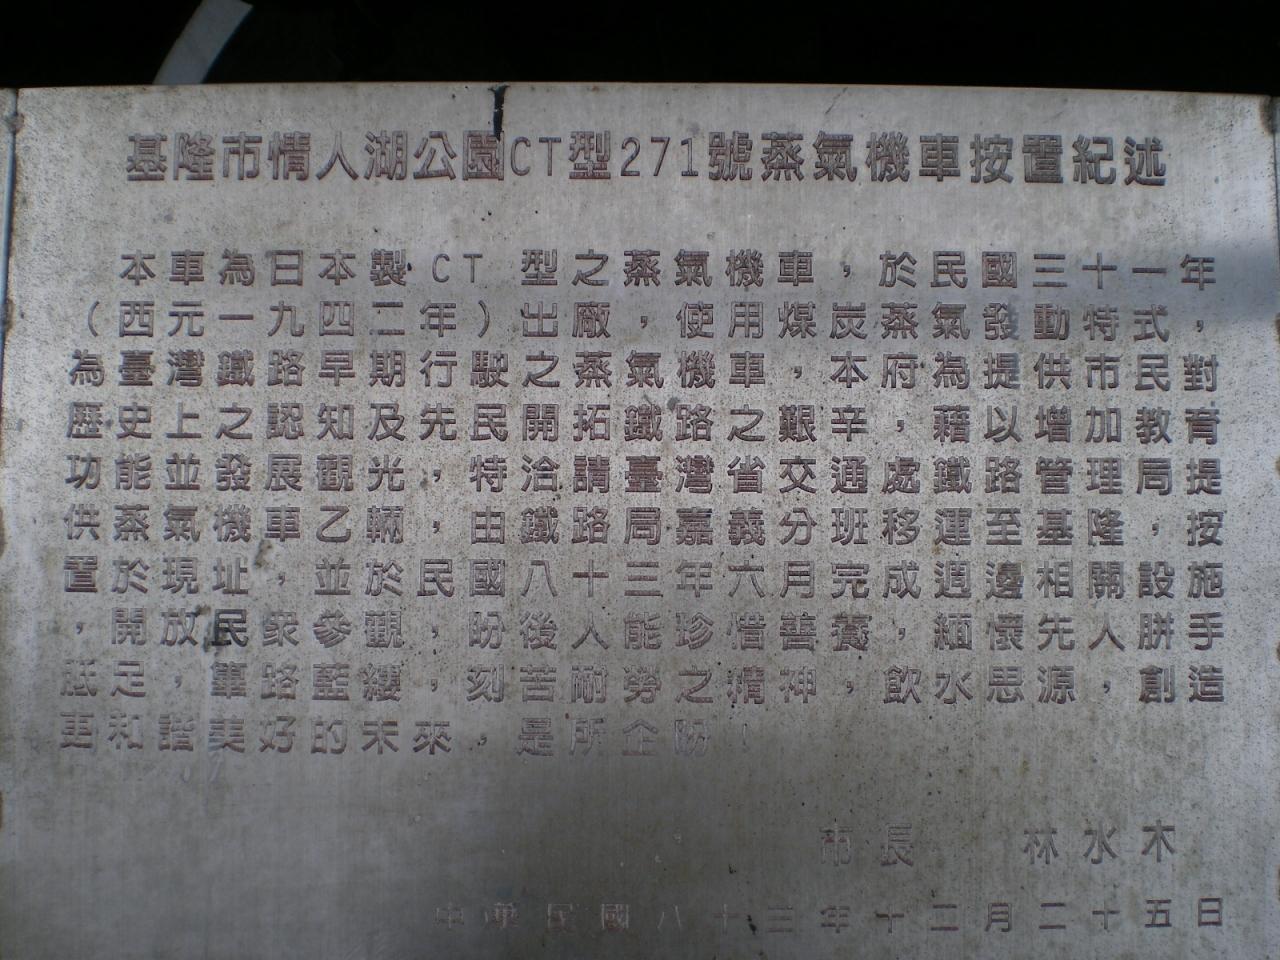 基隆市情人湖公園CT型271號蒸氣機車按置紀述
本車為日本製CT型之蒸氣機車，於民國三十一年
（西元一九四二年）出廠，使用煤炭蒸氣發動特式，
為臺灣鐵路早期行駛之蒸氣機車，本府為提供市民對
歷史上之認知及先民開拓鐵路之艱辛，藉以增加教育
功能並發展觀光，特洽請臺灣省交通處鐵路管理局提
供蒸氣機車乙輛，由鐵路局嘉義分班移運至基隆，按
置於現址，並於民國八十三年六月完成週邊相關設施
，開放民衆參觀，盼後人能珍惜善養，緬懷先人胼手
胝足，篳路藍縷，刻苦耐勞之精神，飲水思源，創造
更和諧美好的未來，是所企盼！
市長 林水木
中華民國八十三年十二月二十五日